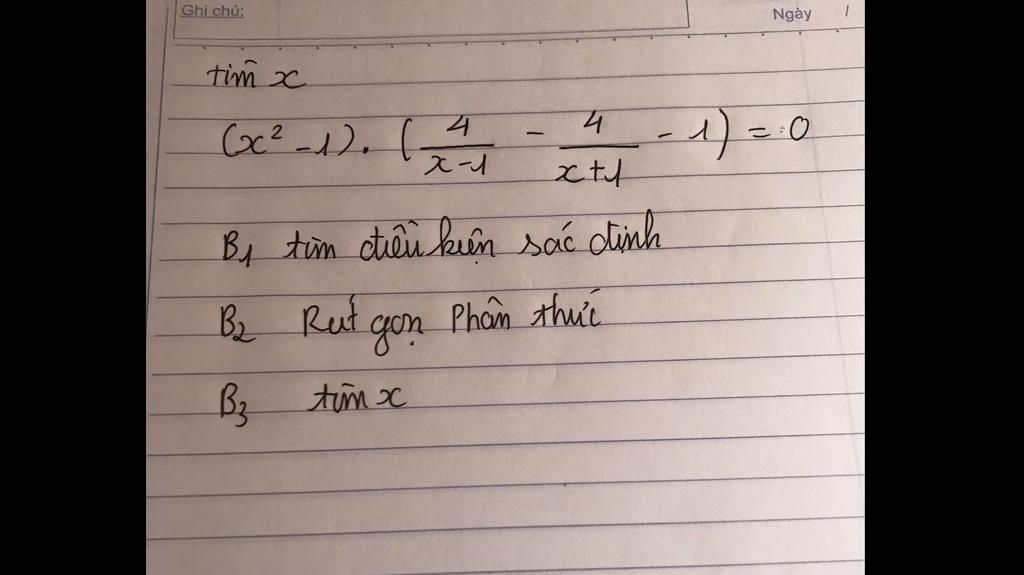 Ghi chú: Ngày /
tìm x
(x² - 1). (4/(x-1) - 4/(x+1) - 1) = 0
B1 tìm điều kiện sác định
B2 Rút gọn Phân thức
B3 tìm x